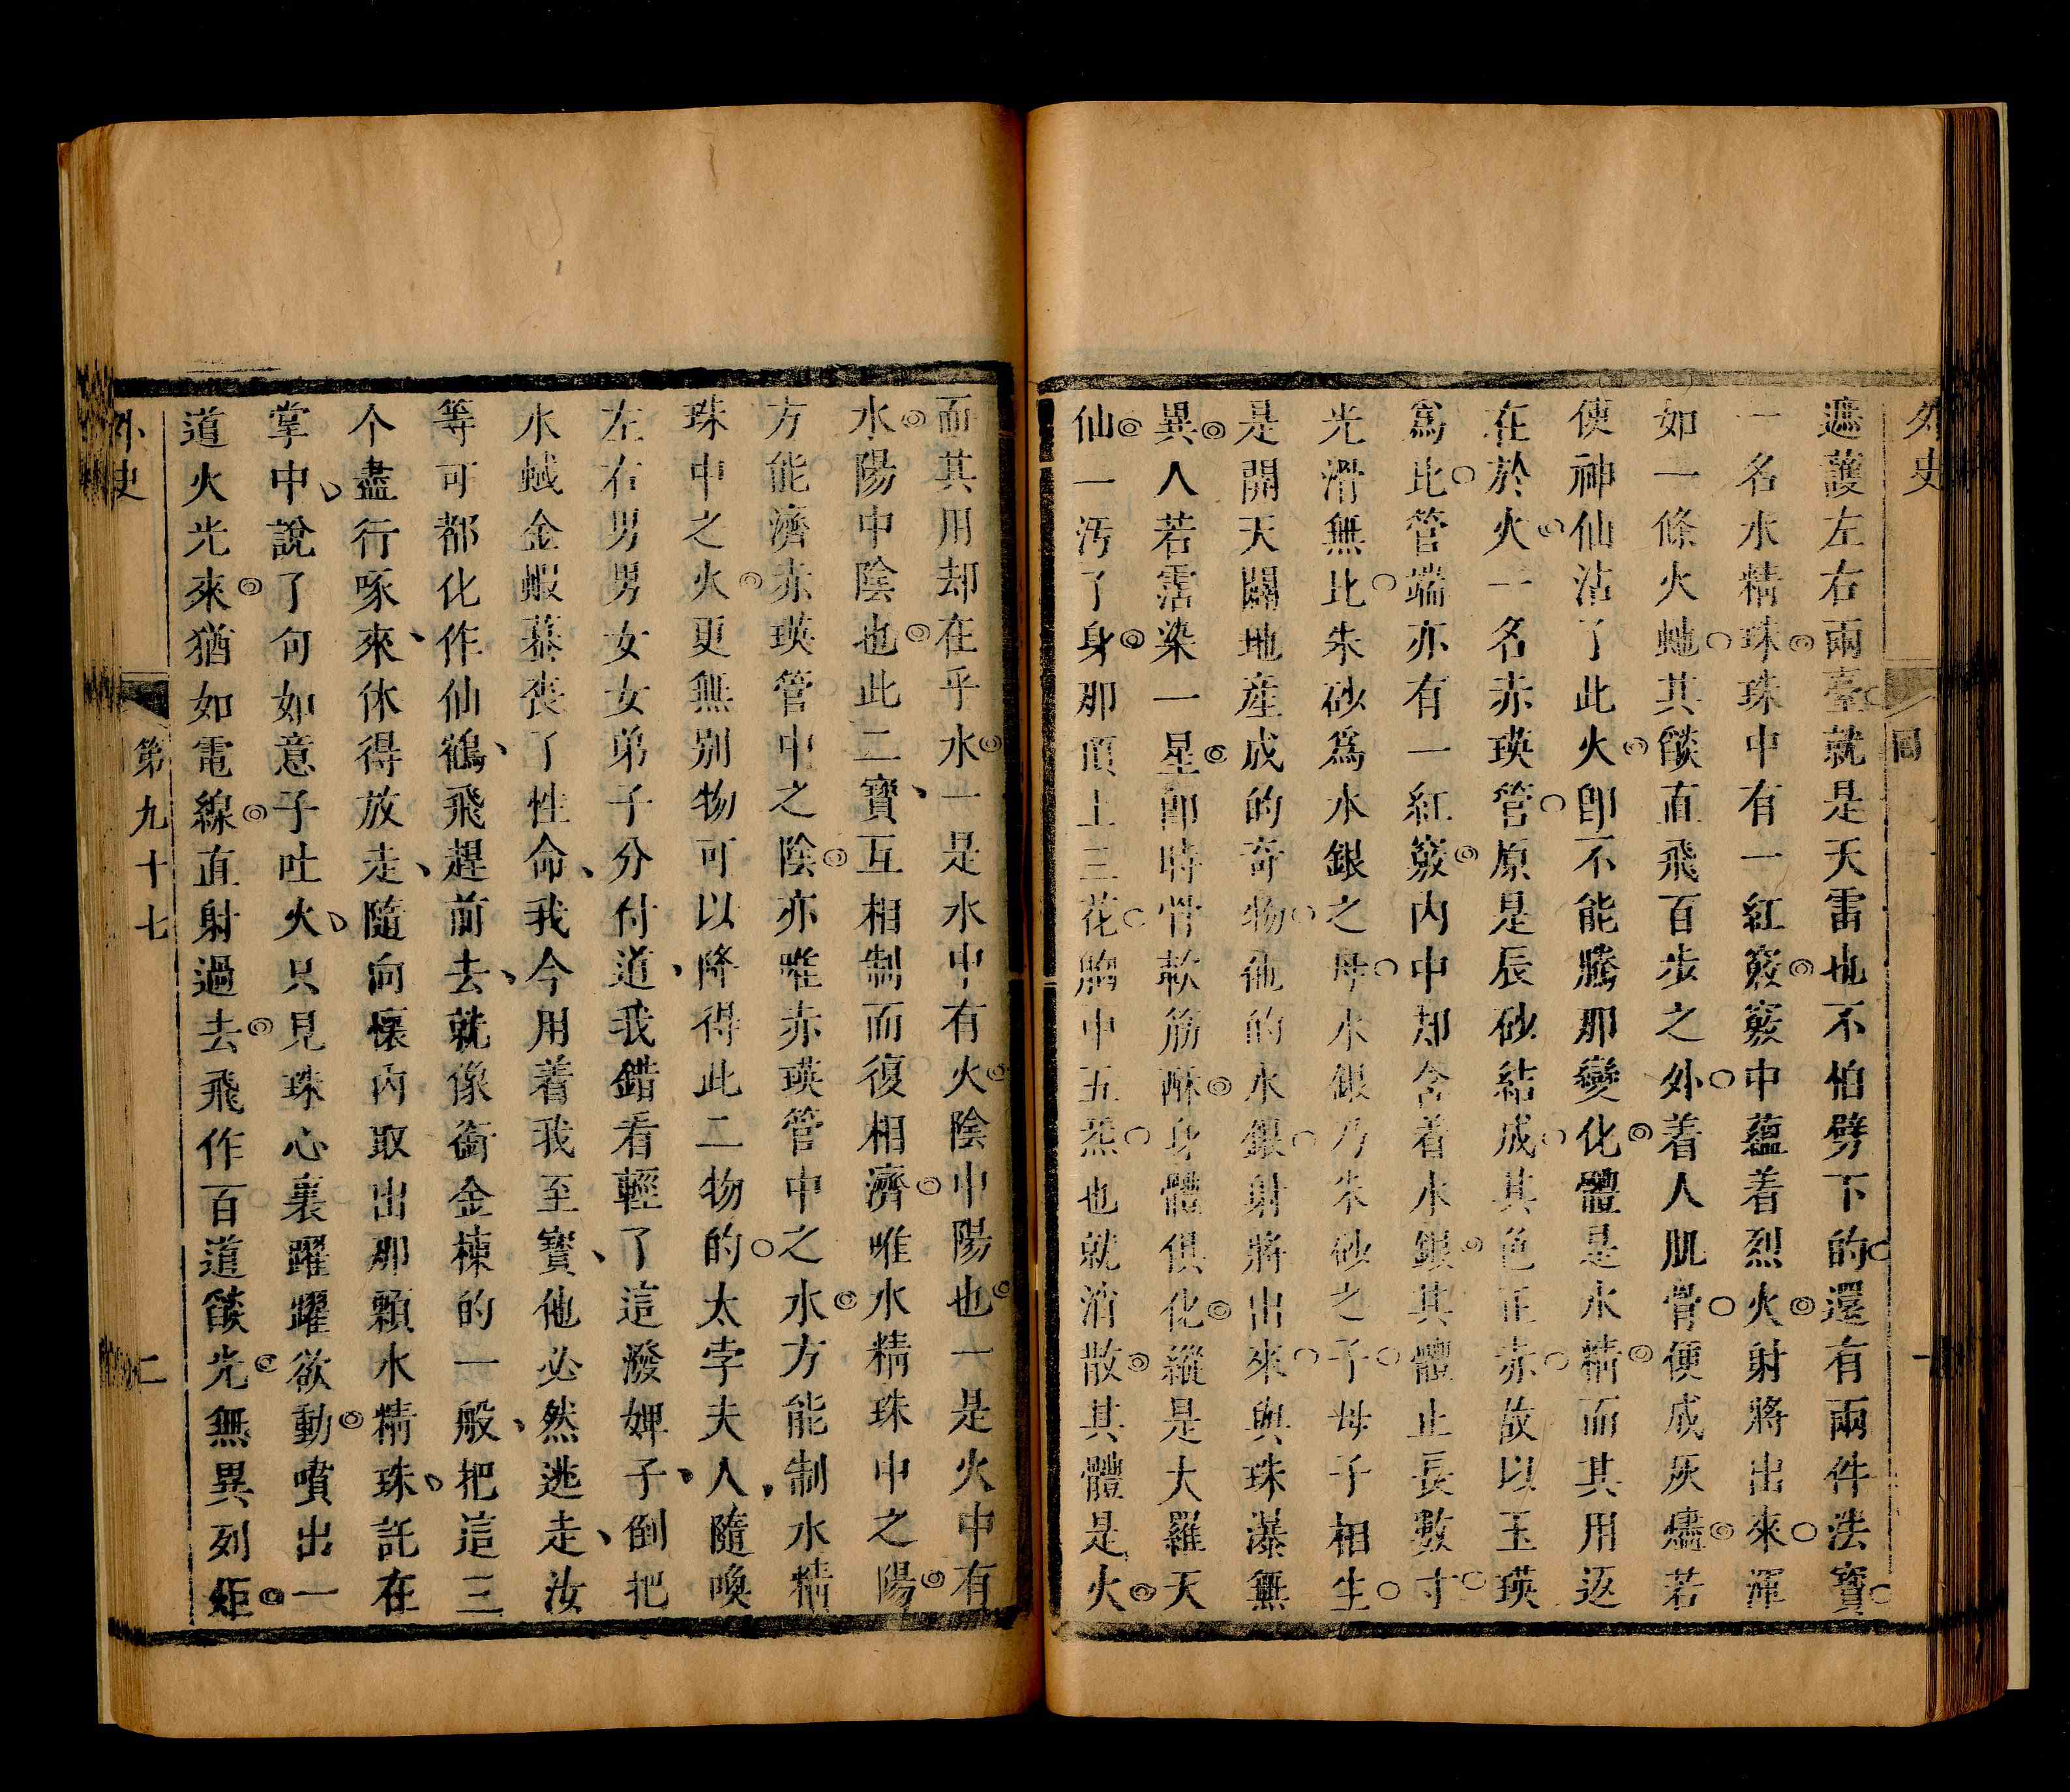 外史
回
一
遮護左右兩臺就是天雷也不怕劈下的還有兩件法寶
一名水精珠珠中有一紅竅竅中蘊着烈火射將出來渾
如一條火虵其燄直飛百步之外着人肌骨便成灰燼若
使神仙沾了此火卽不能騰那變化體是水精而其用返
在於火一名赤瑛管原是辰砂結成其色正赤故以玉瑛
爲比管端亦有一紅竅內中却含着水銀其體止長數寸
光滑無比朱砂爲水銀之母水銀乃朱砂之子母子相生
是開天闢地產成的奇物他的水銀射將出來與珠瀑無
異人若霑染一星卽時骨軟筋酥身體俱化縱是大羅天
仙一汚了身那頂上三花胸中五炁也就消散其體是火
而其用却在乎水一是水中有火陰中陽也一是火中有
水陽中陰也此二寶互相制而復相濟唯水精珠中之陽
方能濟赤瑛管中之陰亦唯赤瑛管中之水方能制水精
珠中之火更無別物可以降得此二物的太孛夫人隨喚
左右男男女女弟子分付道我錯看輕了這潑婢子倒把
水蜮金蝦蟇喪了性命我今用着我至寶他必然逃走汝
等可都化作仙鶴飛趕前去就像銜金棟的一般把這三
个盡行啄來休得放走隨向懷內取出那顆水精珠託在
掌中說了句如意子吐火只見珠心裏躍躍欲動噴出一
道火光來猶如電線直射過去飛作百道燄光無異列炬
外史
第九十七
二